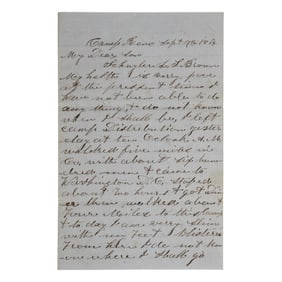 Camp Reno Sept 17th
My Dear son
Schuyler L. S. Brown
My helth is very poor
at this present time I
have not been able to do
any thing & do not know
when I shall be, I left
camp Distribution yester
day at ten Oclock A.M.
walked five miles in
Co, with about six hun
dred men & came to
Washington D. C. stoped
about two hours & got Din
er there, walked about
fours Miles to this Camp
& to day I am very stiff
with my feet Blistered
from here I do not kno
w where I shall go